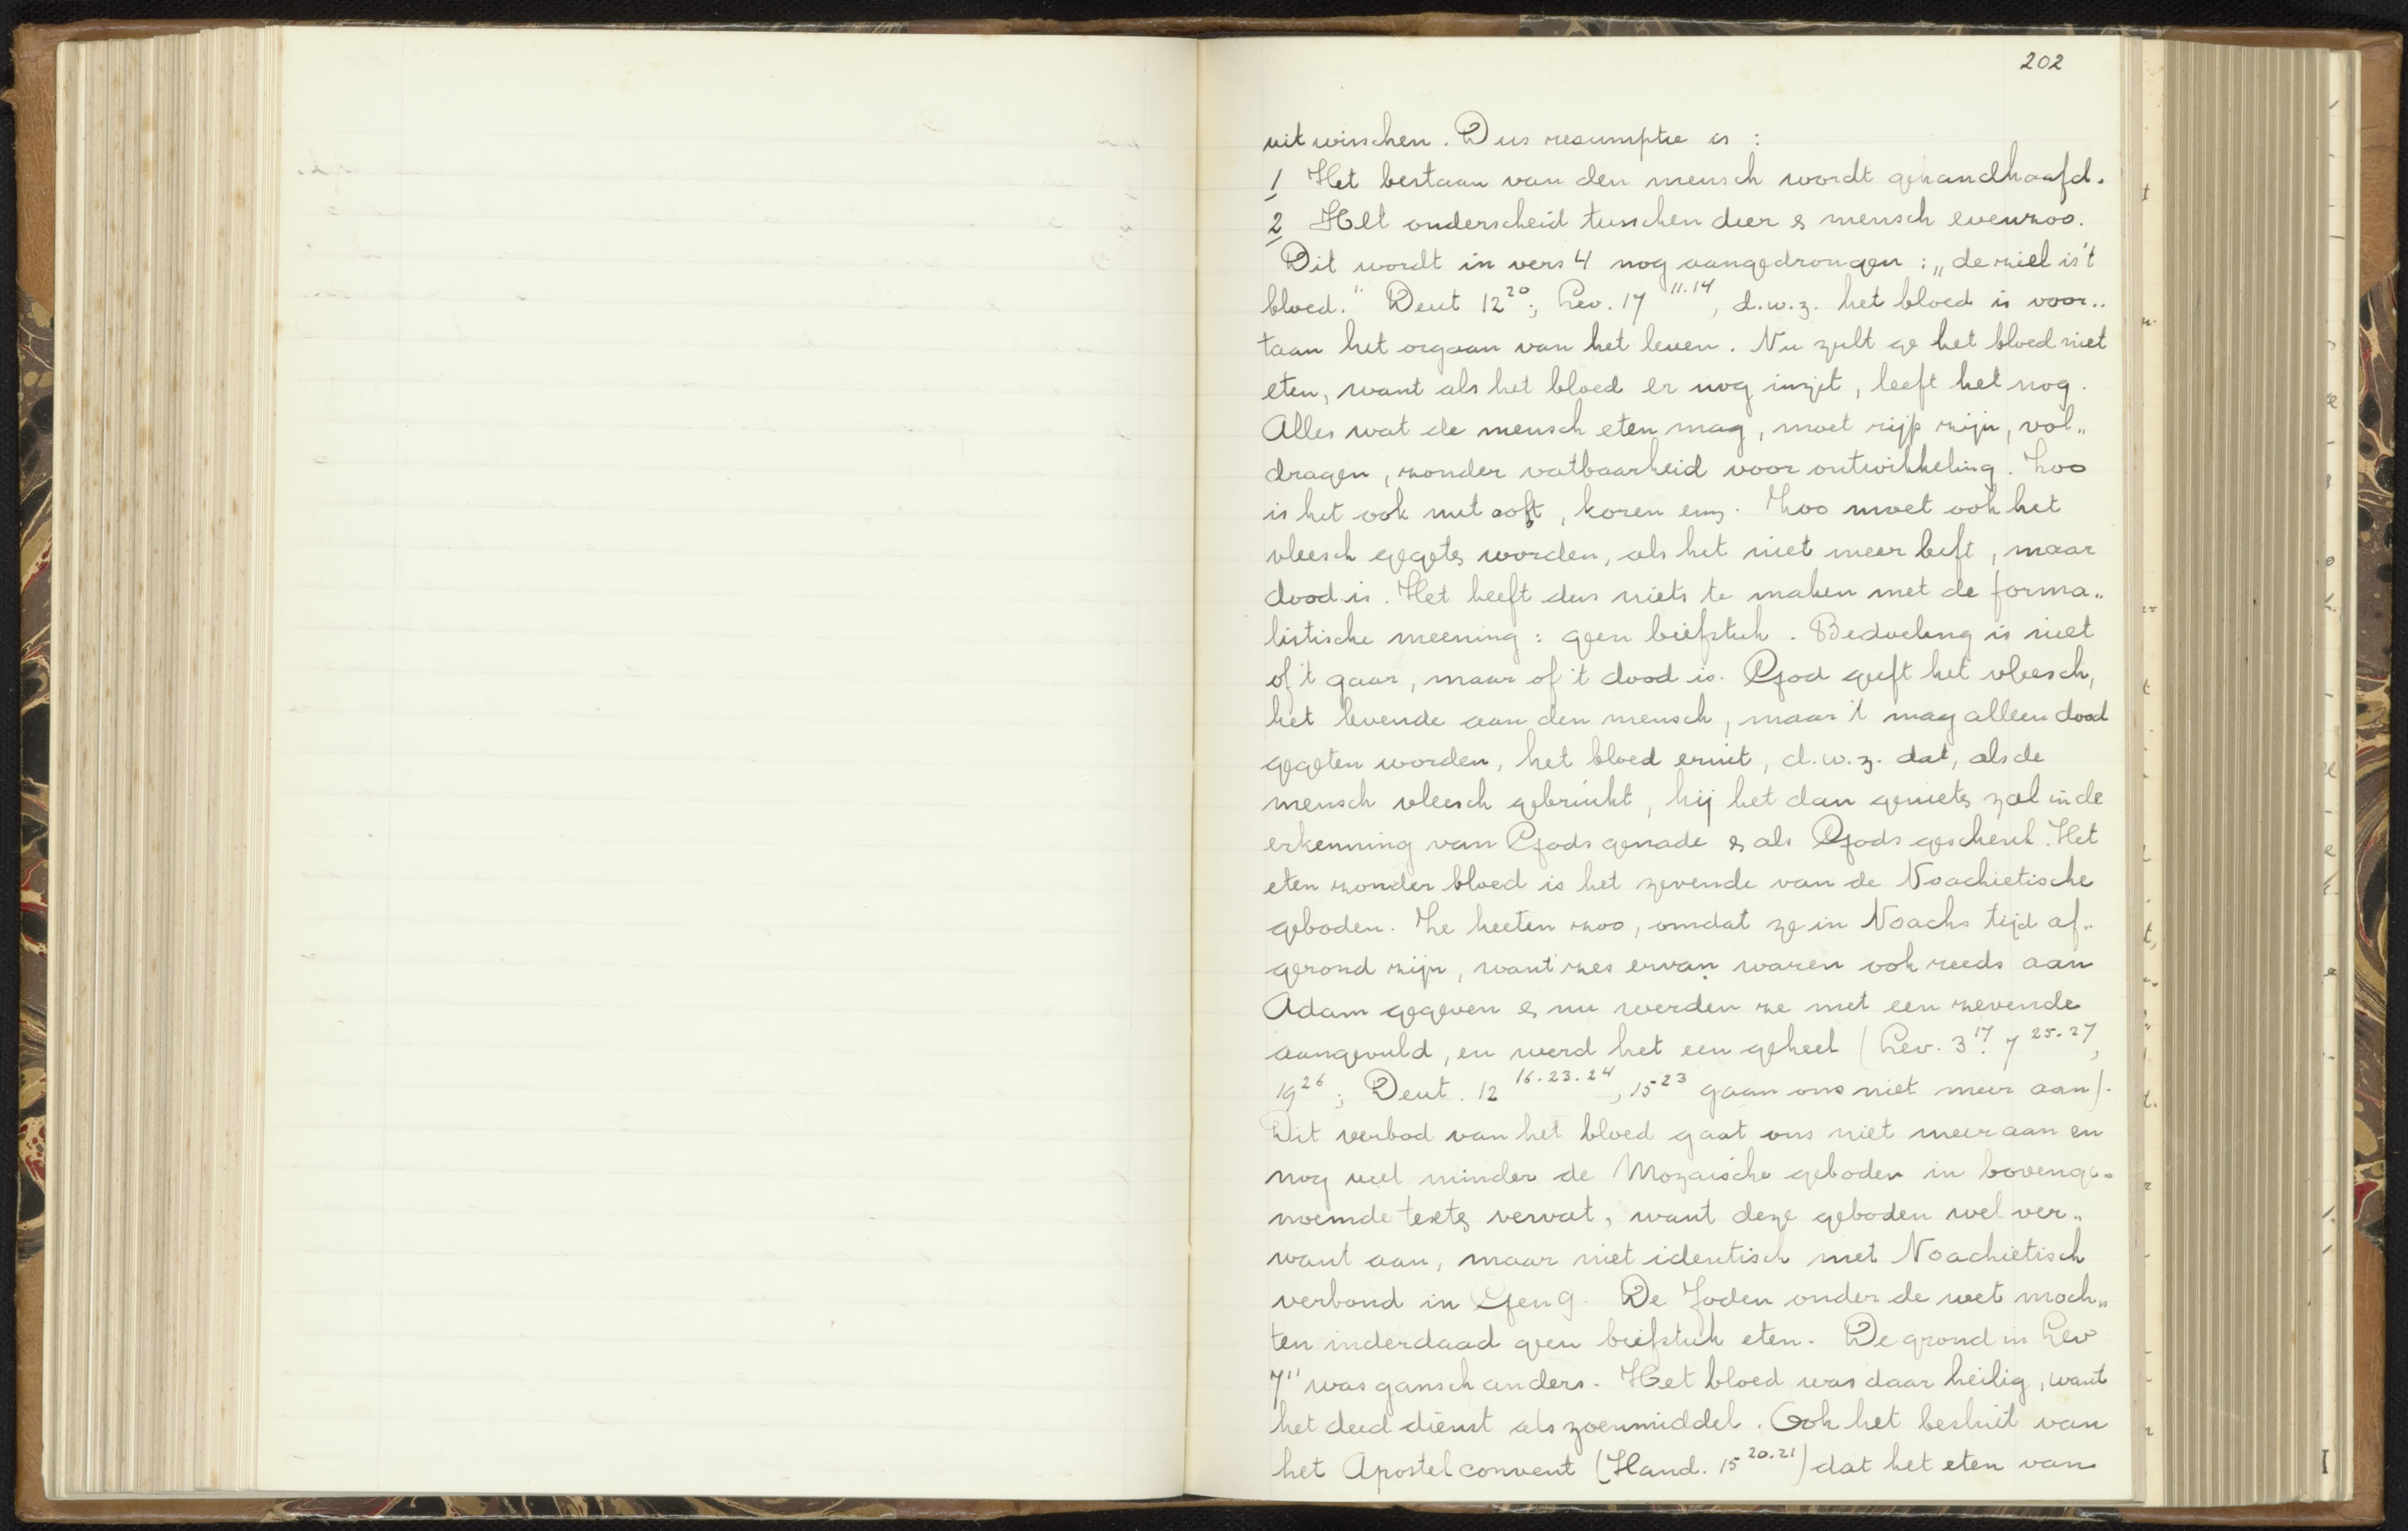 202
uitwisschen. Dus resumptie is :
1 Het bestaan van den mensch wordt gehandhaafd.
2 Het onderscheid tusschen dier & mensch evenzoo.
Dit wordt in vers 4 nog aangedrongen : „de ziel is 't
bloed." Deut 12²⁰; Lev. 17 ¹¹·¹⁴, d.w.z. het bloed is voor„
taan het orgaan van het leven. Nu zult ge het bloed niet
eten, want als het bloed er nog inzit, leeft het nog.
Alles wat de mensch eten mag, moet rijp zijn, vol„
dragen, zonder vatbaarheid voor ontwikkeling. Zoo
is het ook met ooft, koren enz. Zoo moet ook het
vleesch gegeten worden, als het niet meer leeft, maar
dood is. Het heeft dus niets te maken met de forma„
listische meening : geen biefstuk. Bedoeling is niet
of 't gaar, maar of 't dood is. God geeft het vleesch,
het levende aan den mensch, maar 't mag alleen dood
gegeten worden, het bloed eruit, d.w.z. dat, als de
mensch vleesch gebruikt, hij het dan genieten zal in de
erkenning van Gods genade & als Gods geschenk. Het
eten zonder bloed is het zevende van de Noachietische
geboden. Ze heeten zoo, omdat ze in Noachs tijd af„
gerond zijn, want zes ervan waren ook reeds aan
Adam gegeven & nu werden ze met een zevende
aangevuld, en werd het een geheel (Lev. 3¹⁷. 7 ²⁵·²⁷,
19²⁶; Deut. 12 ¹⁶·²³·²⁴, 15²³ gaan ons niet meer aan).
Dit verbod van het bloed gaat ons niet meer aan en
nog veel minder de Mozaische geboden in bovenge„
noemde texten vervat, want deze geboden wel ver„
want aan, maar niet identisch met Noachietisch
verbond in Gen 9. De Joden onder de wet moch„
ten inderdaad geen biefstuk eten. De grond in Lev
7¹¹ was gansch anders. Het bloed was daar heilig, want
het deed dienst als zoenmiddel. Ook het besluit van
het Apostelconvent (Hand. 15 ²⁰·²¹) dat het eten van